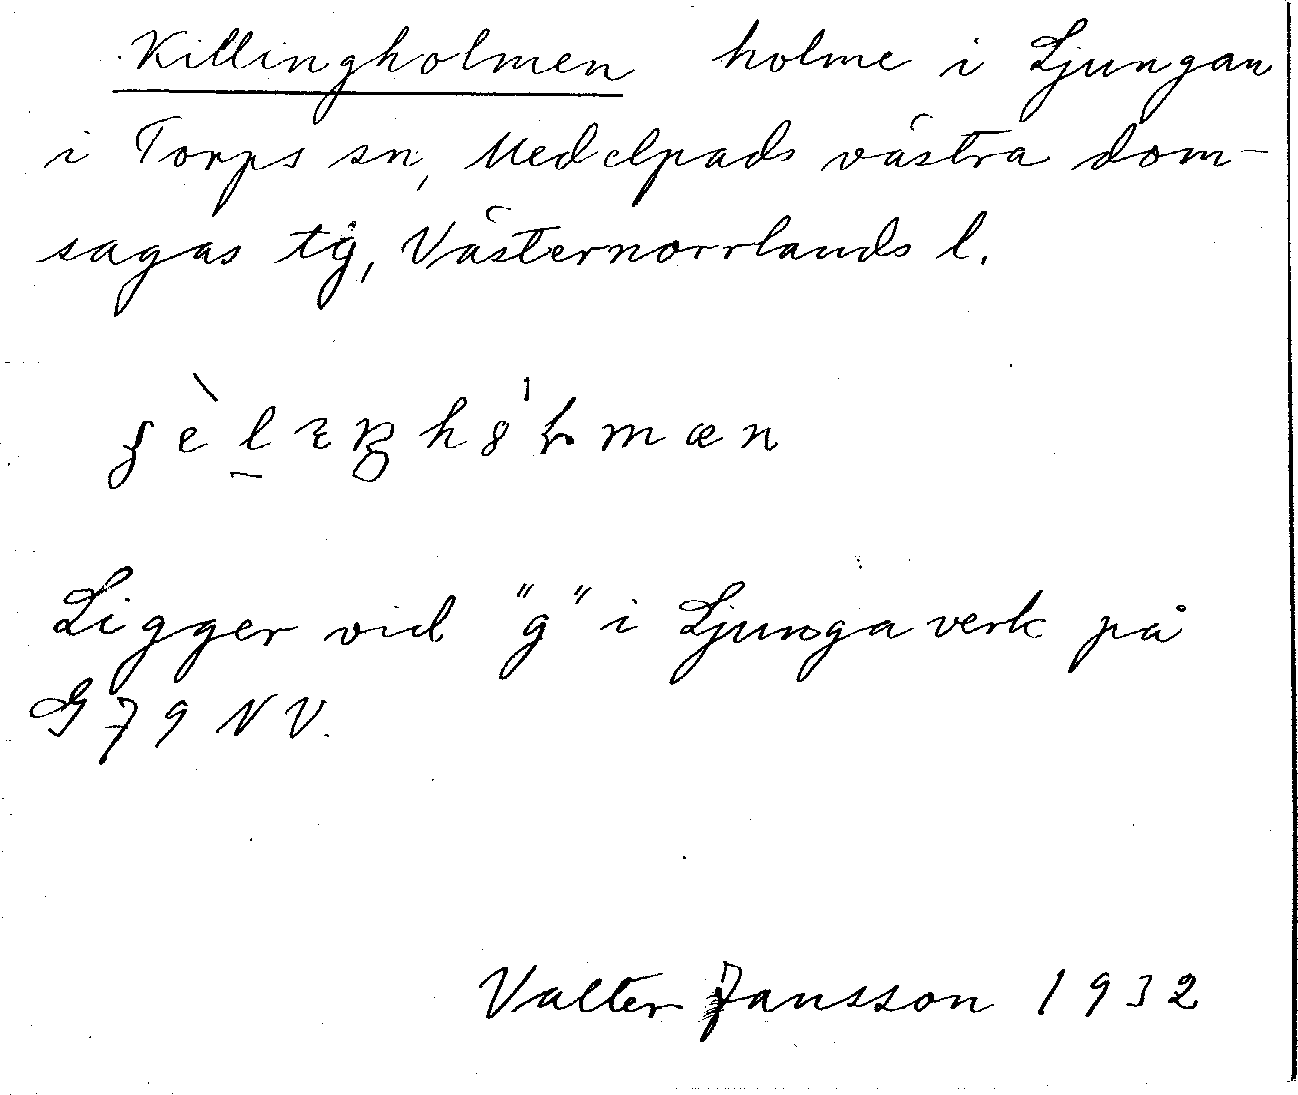 Killingholmen holme i Ljungan
i Torps sn, Medelpads västra dom-
sagas tg, Västernorrlands l.
Ligger vid "g" i Ljungaverk på
G79 NV.
Valter Jansson 1932